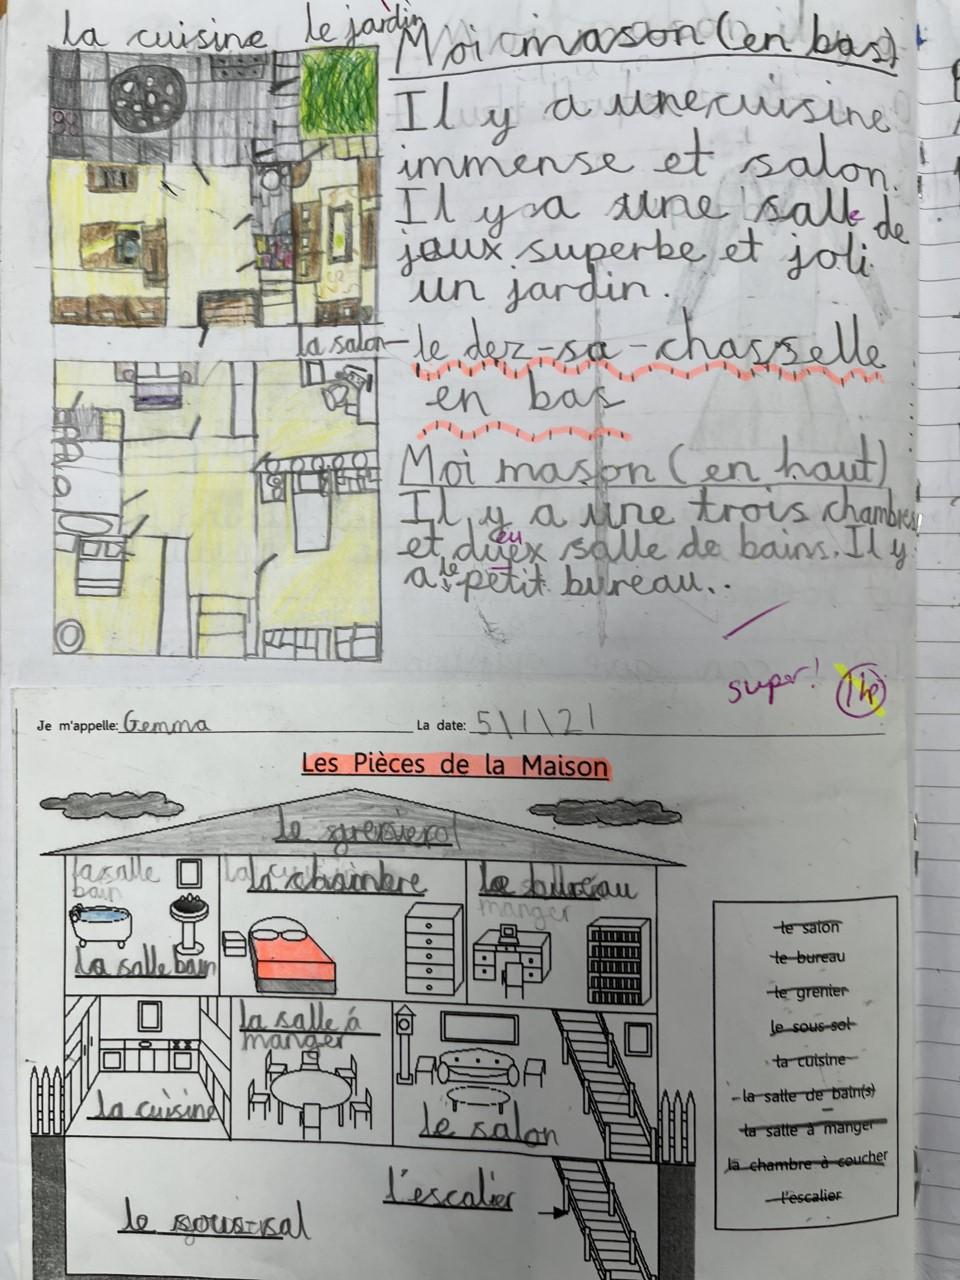 la cuisine le jardin
Moi mason (en bas)
Il y a une cuisine
immense et salon.
Il y a une salle de
jeux superbe et joli
un jardin.
la salon
le dez-sa-chasselle
en bas
Moi mason (en haut)
Il y a une trois chambres
et duex salle de bains. Il y
eu
a le petit bureau..
super! 1hp
Je m'appelle: Gemma La date: 5/1/21
Les Pièces de la Maison
le grenier
la salle
bain
la chambre
le bureau
manger
la salle bain
la salle à
manger
la cuisine
le salon
l'escalier
le sous-sal
le salon
le bureau
le grenier
le sous-sol
la cuisine
la salle de bain(s)
la salle à manger
la chambre à coucher
l'escalier